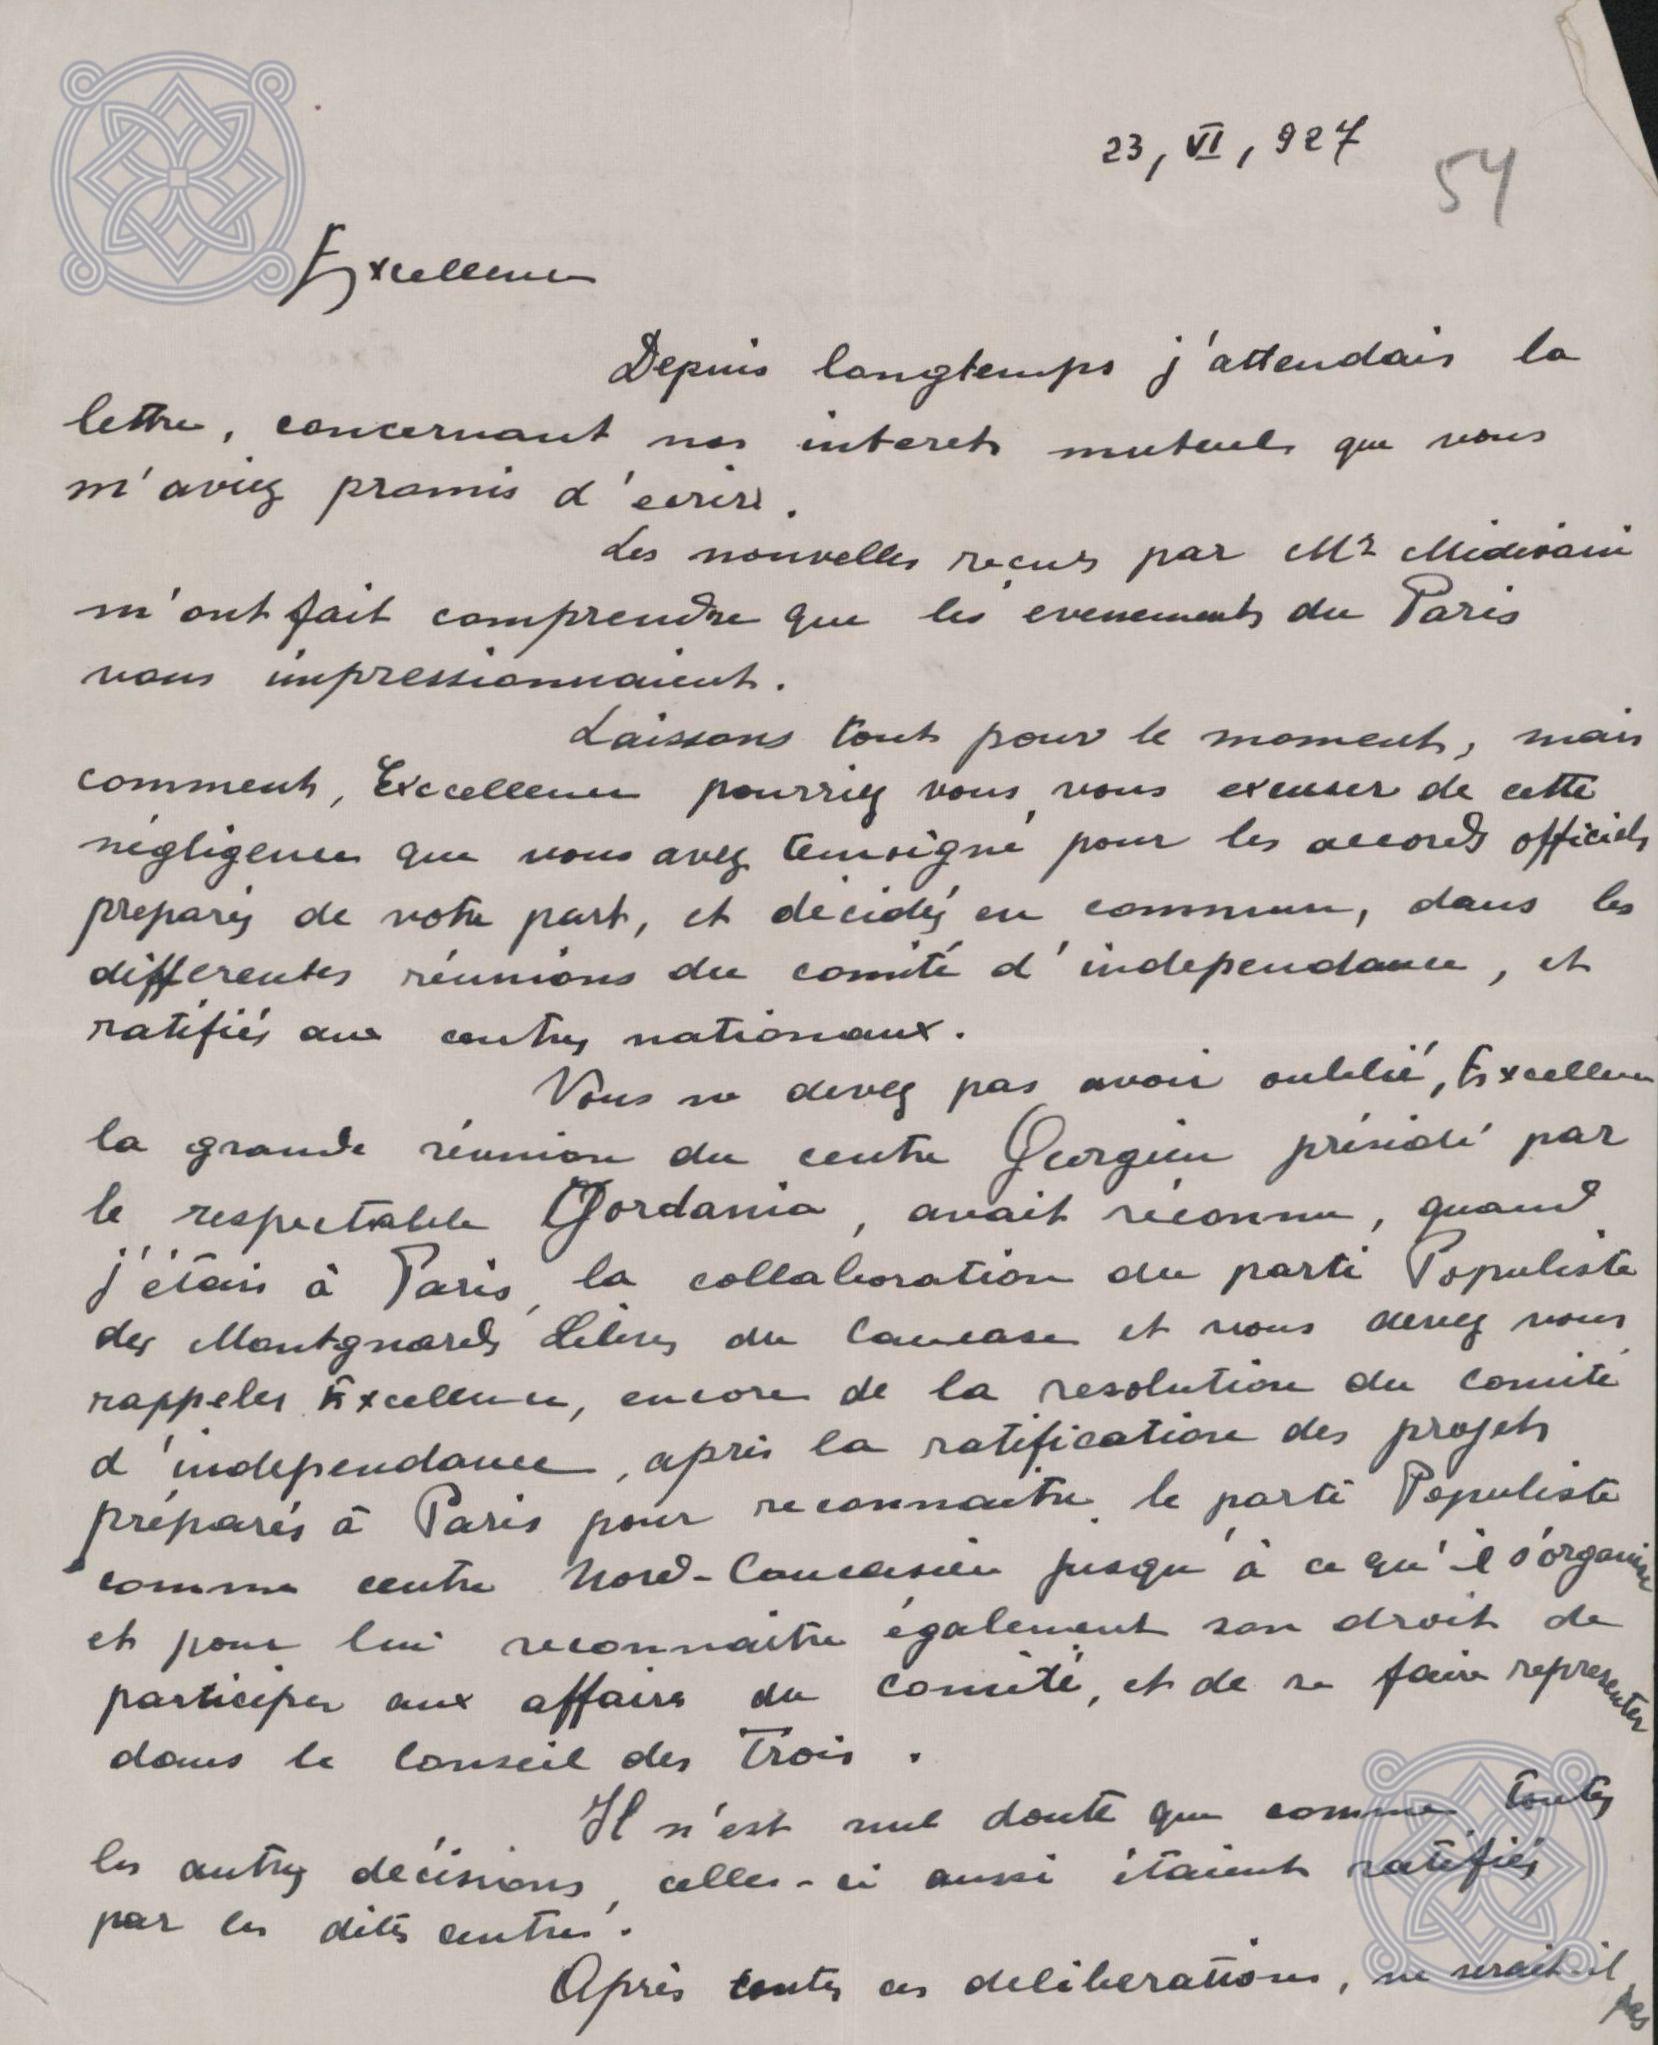 23, VI, 927
54
Excellence
Depuis longtemps j'attendais la
lettre, concernant nos interets mutuels que vous
m'aviez promis d'ecrire.
Les nouvelles reçues par Mr Midivani
m'ont fait comprendre que les evenements du Paris
vous impressionnaient.
Laissons tout pour le moment, mais
comment, Exccellence pourriez vous vous excuser de cette
négligence que vous avez temoigné pour les accords officiels
preparés de votre part, et décidés en commun, dans les
differentes réunions du comité d'independance, et
ratifiés aux centres nationaux.
Vous ne devez pas avoir oublié, Excellence
la grande réunion du centre Georgien présidé par
le respectable Jordania, avait réconnu, quand
j'étais à Paris, la collaboration du parti Populiste
des Montgnards Libres du Caucase et vous devez vous
rappeler Excellence, encore de la resolution du comité
d'independance, après la ratification des projets
préparés à Paris pour reconnaitre le parti Populiste
comme centre Nord-Caucasien jusqu'à ce qu'il s'organise
et pour lui reconnaitre également son droit de
participer aux affaires du comité, et de se faire representer
dans le Conseil des Trois.
Il n'est nul doute que comme toutes
les autres décisions, celles-ci aussi étaient ratifiés
par les dites centres.
Après toutes ces deliberations, ne serait-il
pas